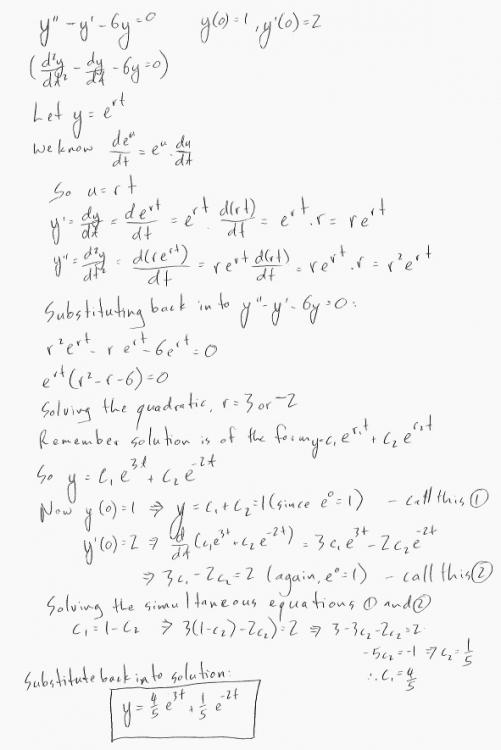 y'' - y' - 6y = 0 y(0) = 1, y'(0) = 2
(d²y/dt² - dy/dt - 6y = 0)
Let y = e^rt
We know de^u/dt = e^u · du/dt
So u = rt
y' = dy/dt = de^rt/dt = e^rt · d(rt)/dt = e^rt · r = re^rt
y'' = d²y/dt² = d(re^rt)/dt = re^rt d(rt)/dt = re^rt · r = r²e^rt
Substituting back in to y'' - y' - 6y = 0:
r²e^rt - re^rt - 6e^rt = 0
e^rt(r² - r - 6) = 0
Solving the quadratic, r = 3 or -2
Remember solution is of the form y = c₁e^r₁t + c₂e^r₂t
So y = c₁e^3t + c₂e^-2t
Now y(0) = 1 ⇒ y = c₁ + c₂ = 1 (since e⁰ = 1) - call this ①
y'(0) = 2 ⇒ d/dt (c₁e^3t + c₂e^-2t) = 3c₁e^3t - 2c₂e^-2t
⇒ 3c₁ - 2c₂ = 2 (again, e⁰ = 1) - call this ②
Solving the simultaneous equations ① and ②
c₁ = 1 - c₂ ⇒ 3(1 - c₂) - 2c₂ = 2 ⇒ 3 - 3c₂ - 2c₂ = 2
-5c₂ = -1 ⇒ c₂ = 1/5
∴ c₁ = 4/5
Substitute back in to solution:
y = 4/5 e^3t + 1/5 e^-2t